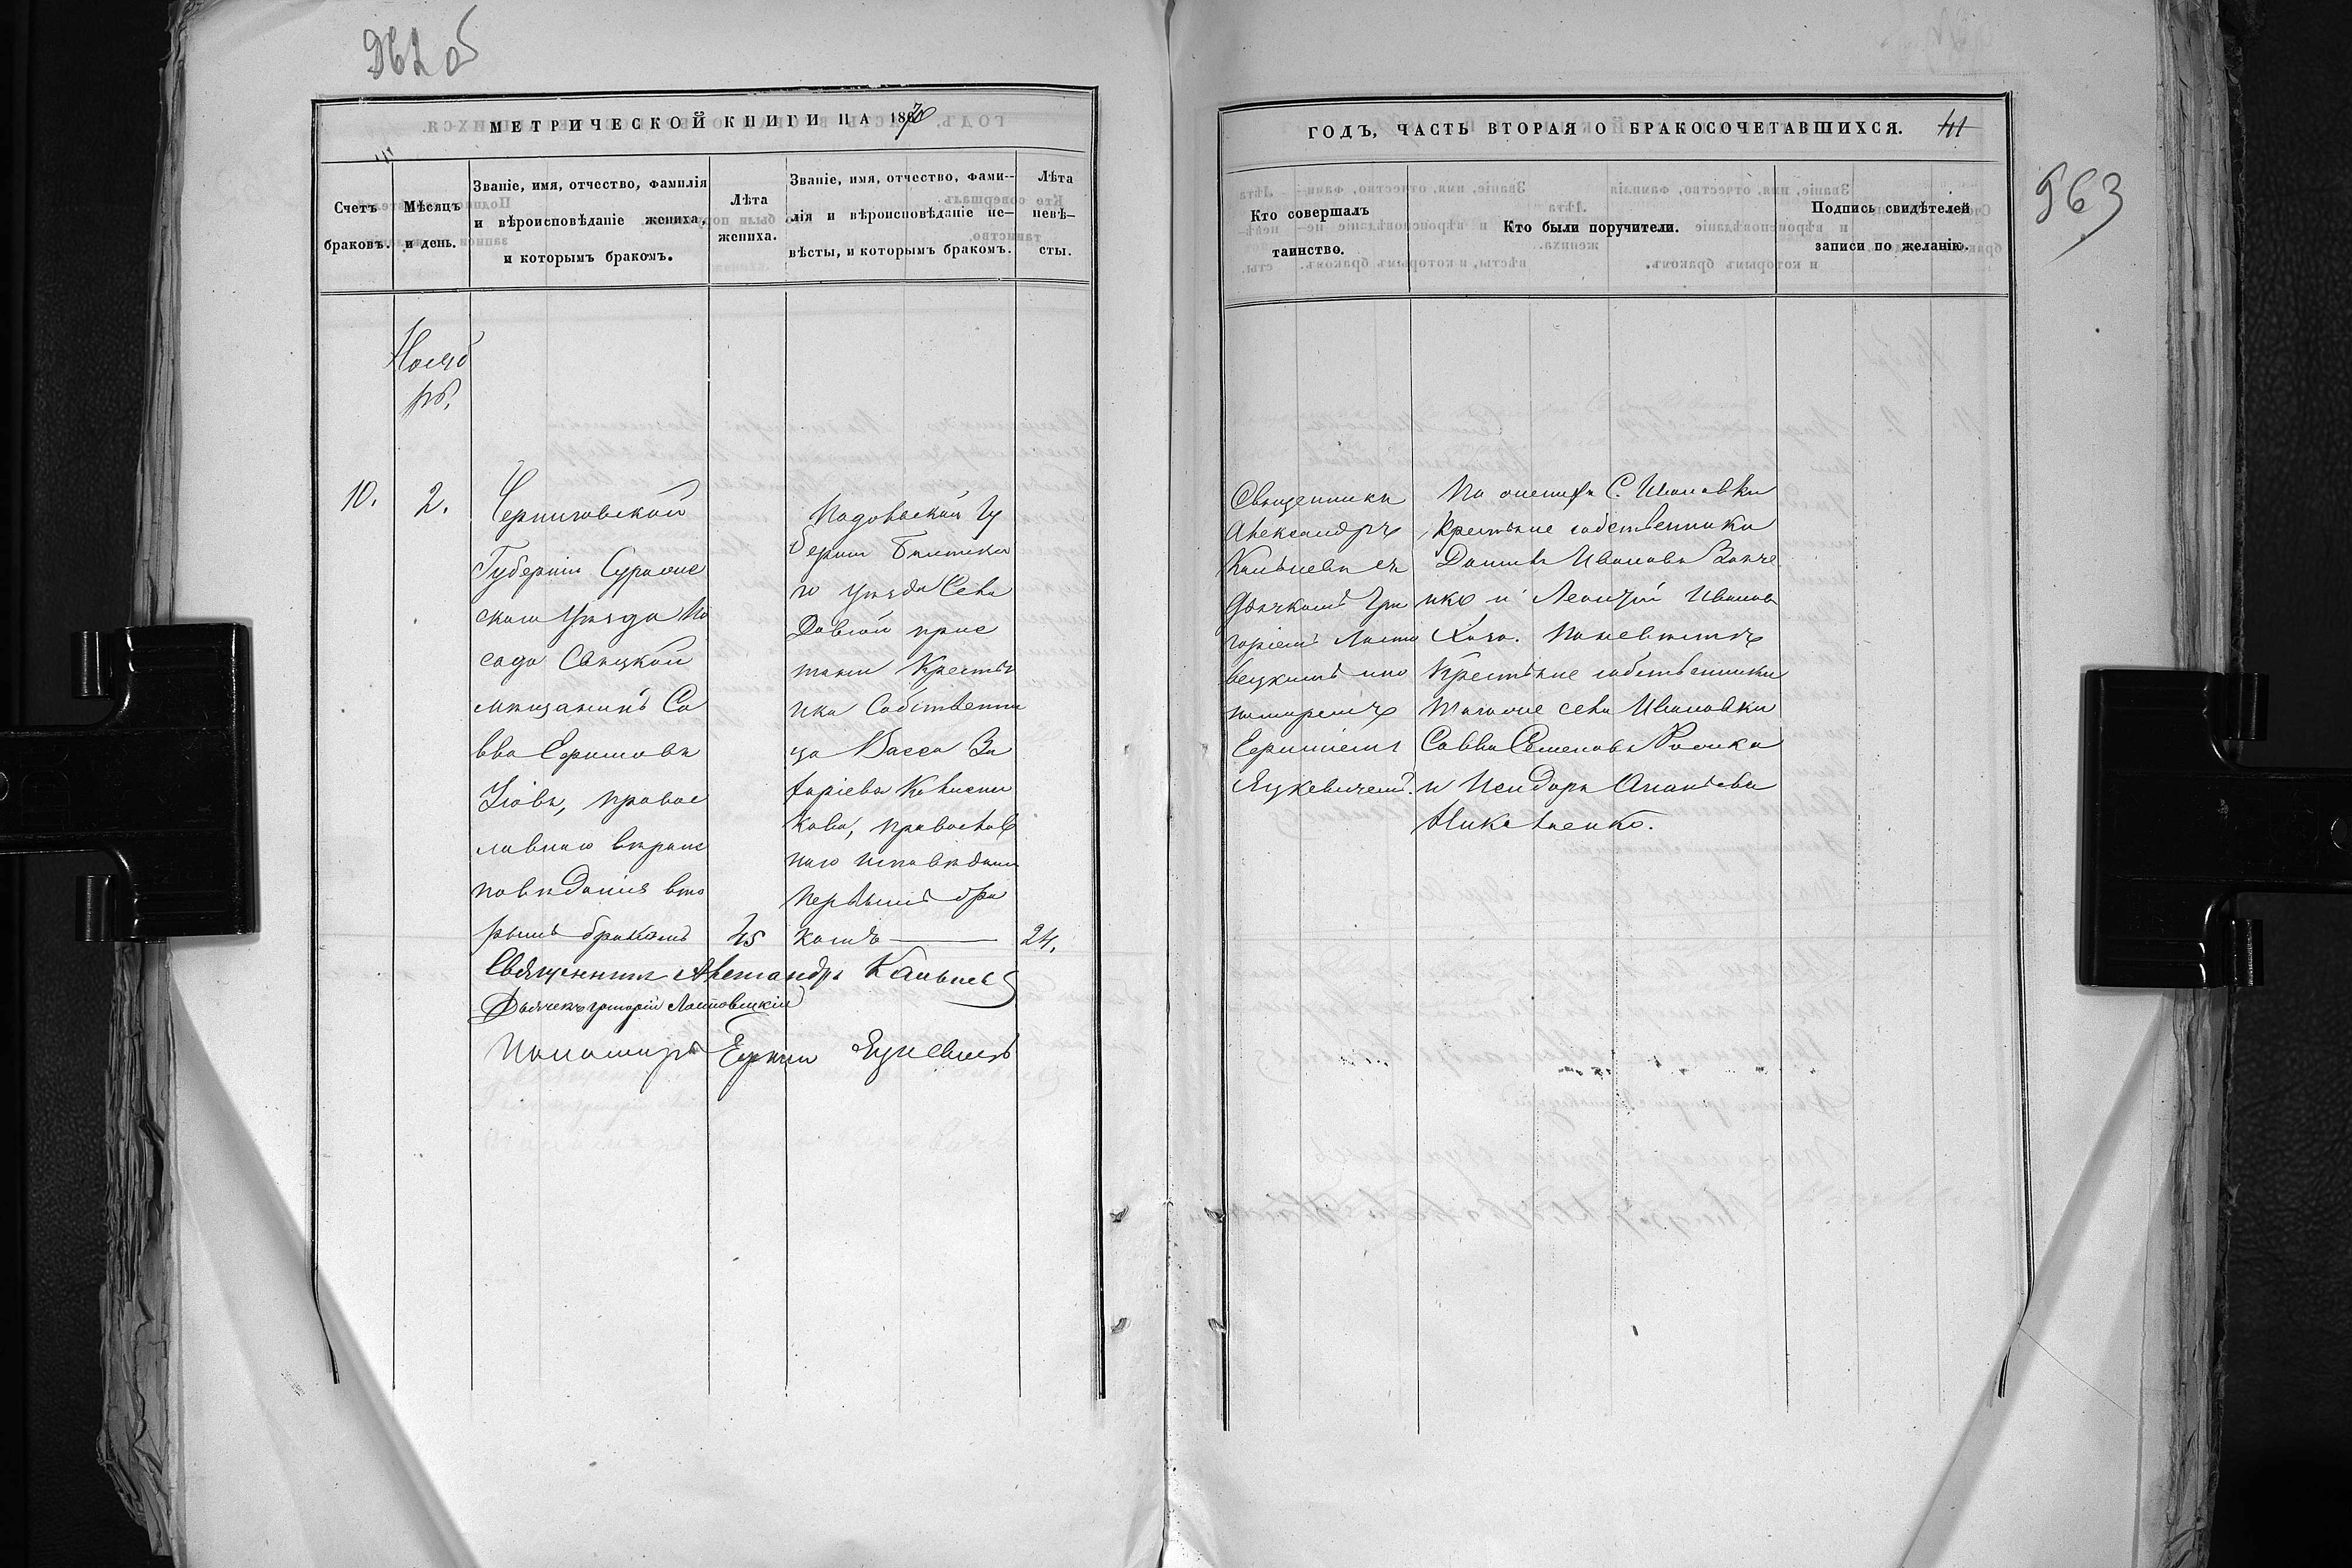 962 об
МЕТРИЧЕСКОЙ КНИГИ НА 1870
Счетъ браковъ.
Мѣсяцъ и день.
Званіе, имя, отчество, фамилія и вѣроисповѣданіе жениха, и которымъ бракомъ.
Лѣта жениха.
Званіе, имя, отчество, фами-
лія и вѣроисповѣданіе не-
вѣсты, и которымъ бракомъ.
Лѣта невѣ-
сты.
Нояб
рь.
10.
2.
Черниговской
Губерніи Сураж
скаго Уѣзда По
сада Свяцкой
мѣщанинъ Са
вва Ефимовъ
правос
лавнаго вѣроис
повѣданія вто
рымъ бракомъ
45
Подольской Гу
берніи Балтска
го уѣзда Села
прис
тани Крестья
нка Собственни
ца Васса За
харіева
кова, православ
наго исповѣданія
первымъ бра
комъ
24.
Священникъ Александръ Капацевъ
Дьячекъ Григорій Лотовицкій
Пономарь Ефимъ Яцкевичъ
ГОДЪ, ЧАСТЬ ВТОРАЯ О БРАКОСОЧЕТАВШИХСЯ.
963
Кто совершалъ таинство.
Кто были поручители.
Подпись свидѣтелей записи по желанію.
Священникъ
Александръ
съ
Дьячкомъ Гри
горіемъ
вицкимъ и по
номаремъ
Ефиміемъ
Яцкевичемъ.
По женихѣ С. Ивановки
Крестьяне собственники
Данилъ Ивановъ
нко и Леонтій Ивановъ
По невѣстѣ
Крестьяне собственники
того же села Ивановки
Савва Семеновъ
и Исидоръ Ананьевъ
Николаенко.